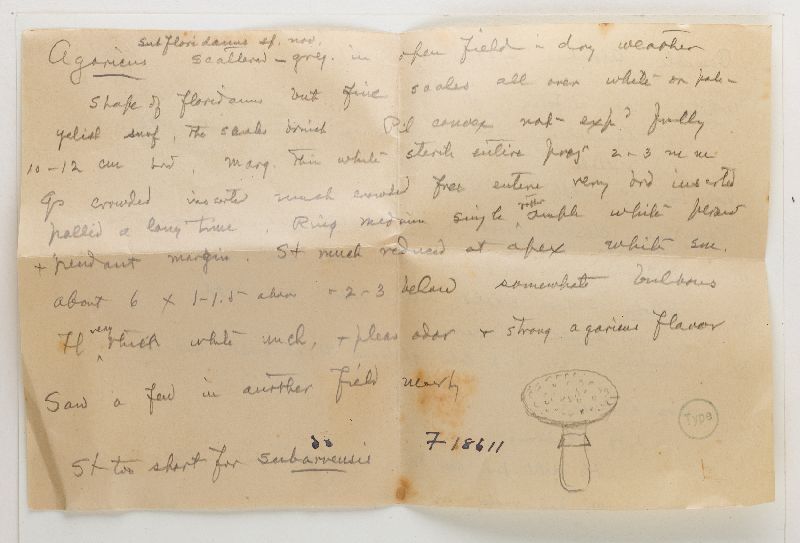 subfloridanus sp. nov.
Agaricus scattered - greg. in open field in dry weather
Shape of floridanus but fine scales all over white or pale-
yelish surf, the scales brnish Pil convex not exp? fully
10-12 cm brd, marg. thin white sterile entire proj 2-3 mm
Gs crowded inserted much crowded free entire very brd inserted
pallid a long time. Ring medium single rather ample white persist
+ pendant margin. St much reduced at apex white sm.
about 6 x 1-1.5 above + 2-3 below somewhat bulbous
Fl very thick white uch, + pleas odor + strong agaricus flavor
Saw a few in another field nearby
St too short for subarvensis
F 18611
Type